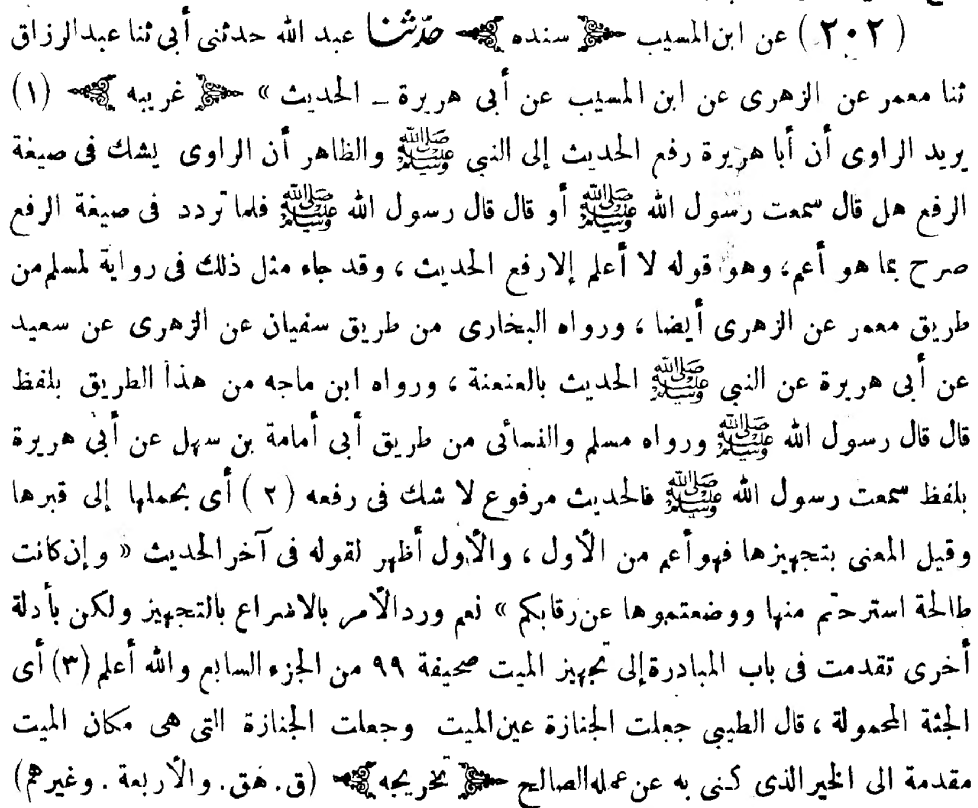 ( ٢٠٢ ) عن ابن المسيب ﴿ سنده ﴾ حدّثنا عبد الله حدثنى أبى ثنا عبد الرزاق
ثنا معمر عن الزهرى عن ابن المسيب عن أبى هريرة ــ الحديث » ﴿ غريبه ﴾ (١)
يريد الراوى أن أبا هريرة رفع الحديث إلى النبي ﷺ والظاهر أن الراوى يشك فى صيغة
الرفع هل قال سمعت رسول الله ﷺ أو قال قال رسول الله ﷺ فلما تردد فى صيغة الرفع
صرح بما هو أعم، وهو قوله لا أعلم إلا رفع الحديث ، وقد جاء مثل ذلك فى رواية لمسلم من
طريق معمر عن الزهرى أيضا ، ورواه البخارى من طريق سفيان عن الزهرى عن سعيد
عن أبى هريرة عن النبي ﷺ الحديث بالعنعنة ، ورواه ابن ماجه من هذا الطريق بلفظ
قال قال رسول الله ﷺ ورواه مسلم والنسائى من طريق أبى أمامة بن سهل عن أبى هريرة
بلفظ سمعت رسول الله ﷺ فالحديث مرفوع لا شك فى رفعه ( ٢ ) أى بحملها إلى قبرها
وقيل المعنى بتجهيزها فهو أعم من الأول ، والأول أظهر لقوله فى آخر الحديث « وإن كانت
طالحة استرحتم منها ووضعتموها عن رقابكم » نعم ورد الأمر بالاسراع بالتجهيز ولكن بأدلة
أخرى تقدمت فى باب المبادرة إلى تجهيز الميت صحيفة ٩٩ من الجزء السابع والله أعلم (٣) أى
الجثة المحمولة ، قال الطيبي جعلت الجنازة عين الميت وجعلت الجنازة التى هى مكان الميت
مقدمة الى الخير الذى كنى به عن عمله الصالح ﴿ تخريجه ﴾ (ق . هق . والأربعة . وغيرهم)